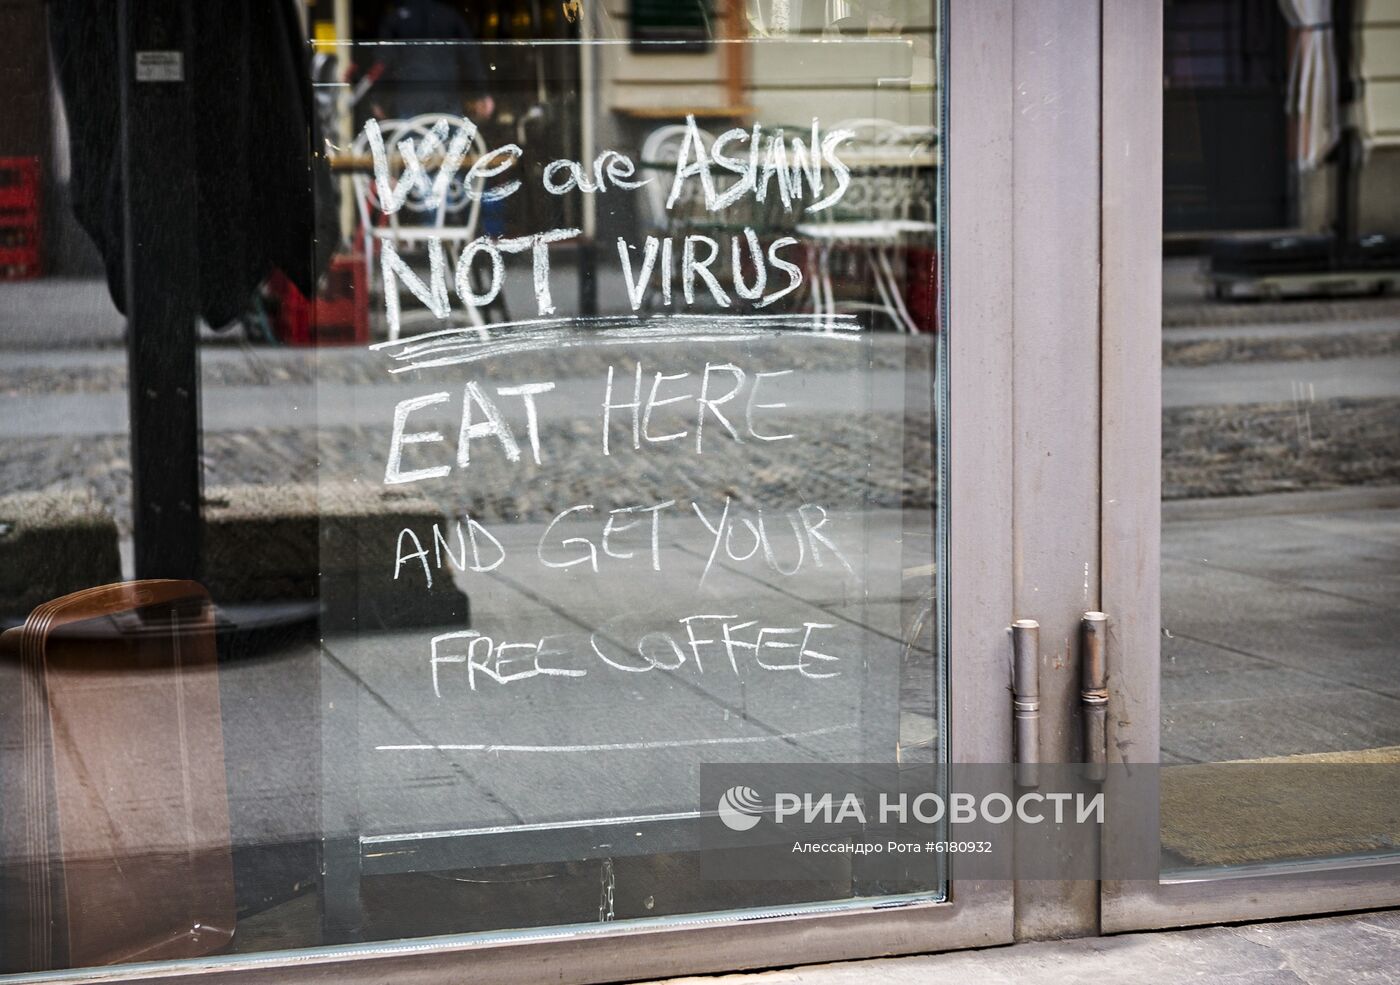 We are ASIANS
NOT VIRUS
EAT HERE
AND GET YOUR
FREE COFFEE
РИА НОВОСТИ
Алессандро Рота #6180932